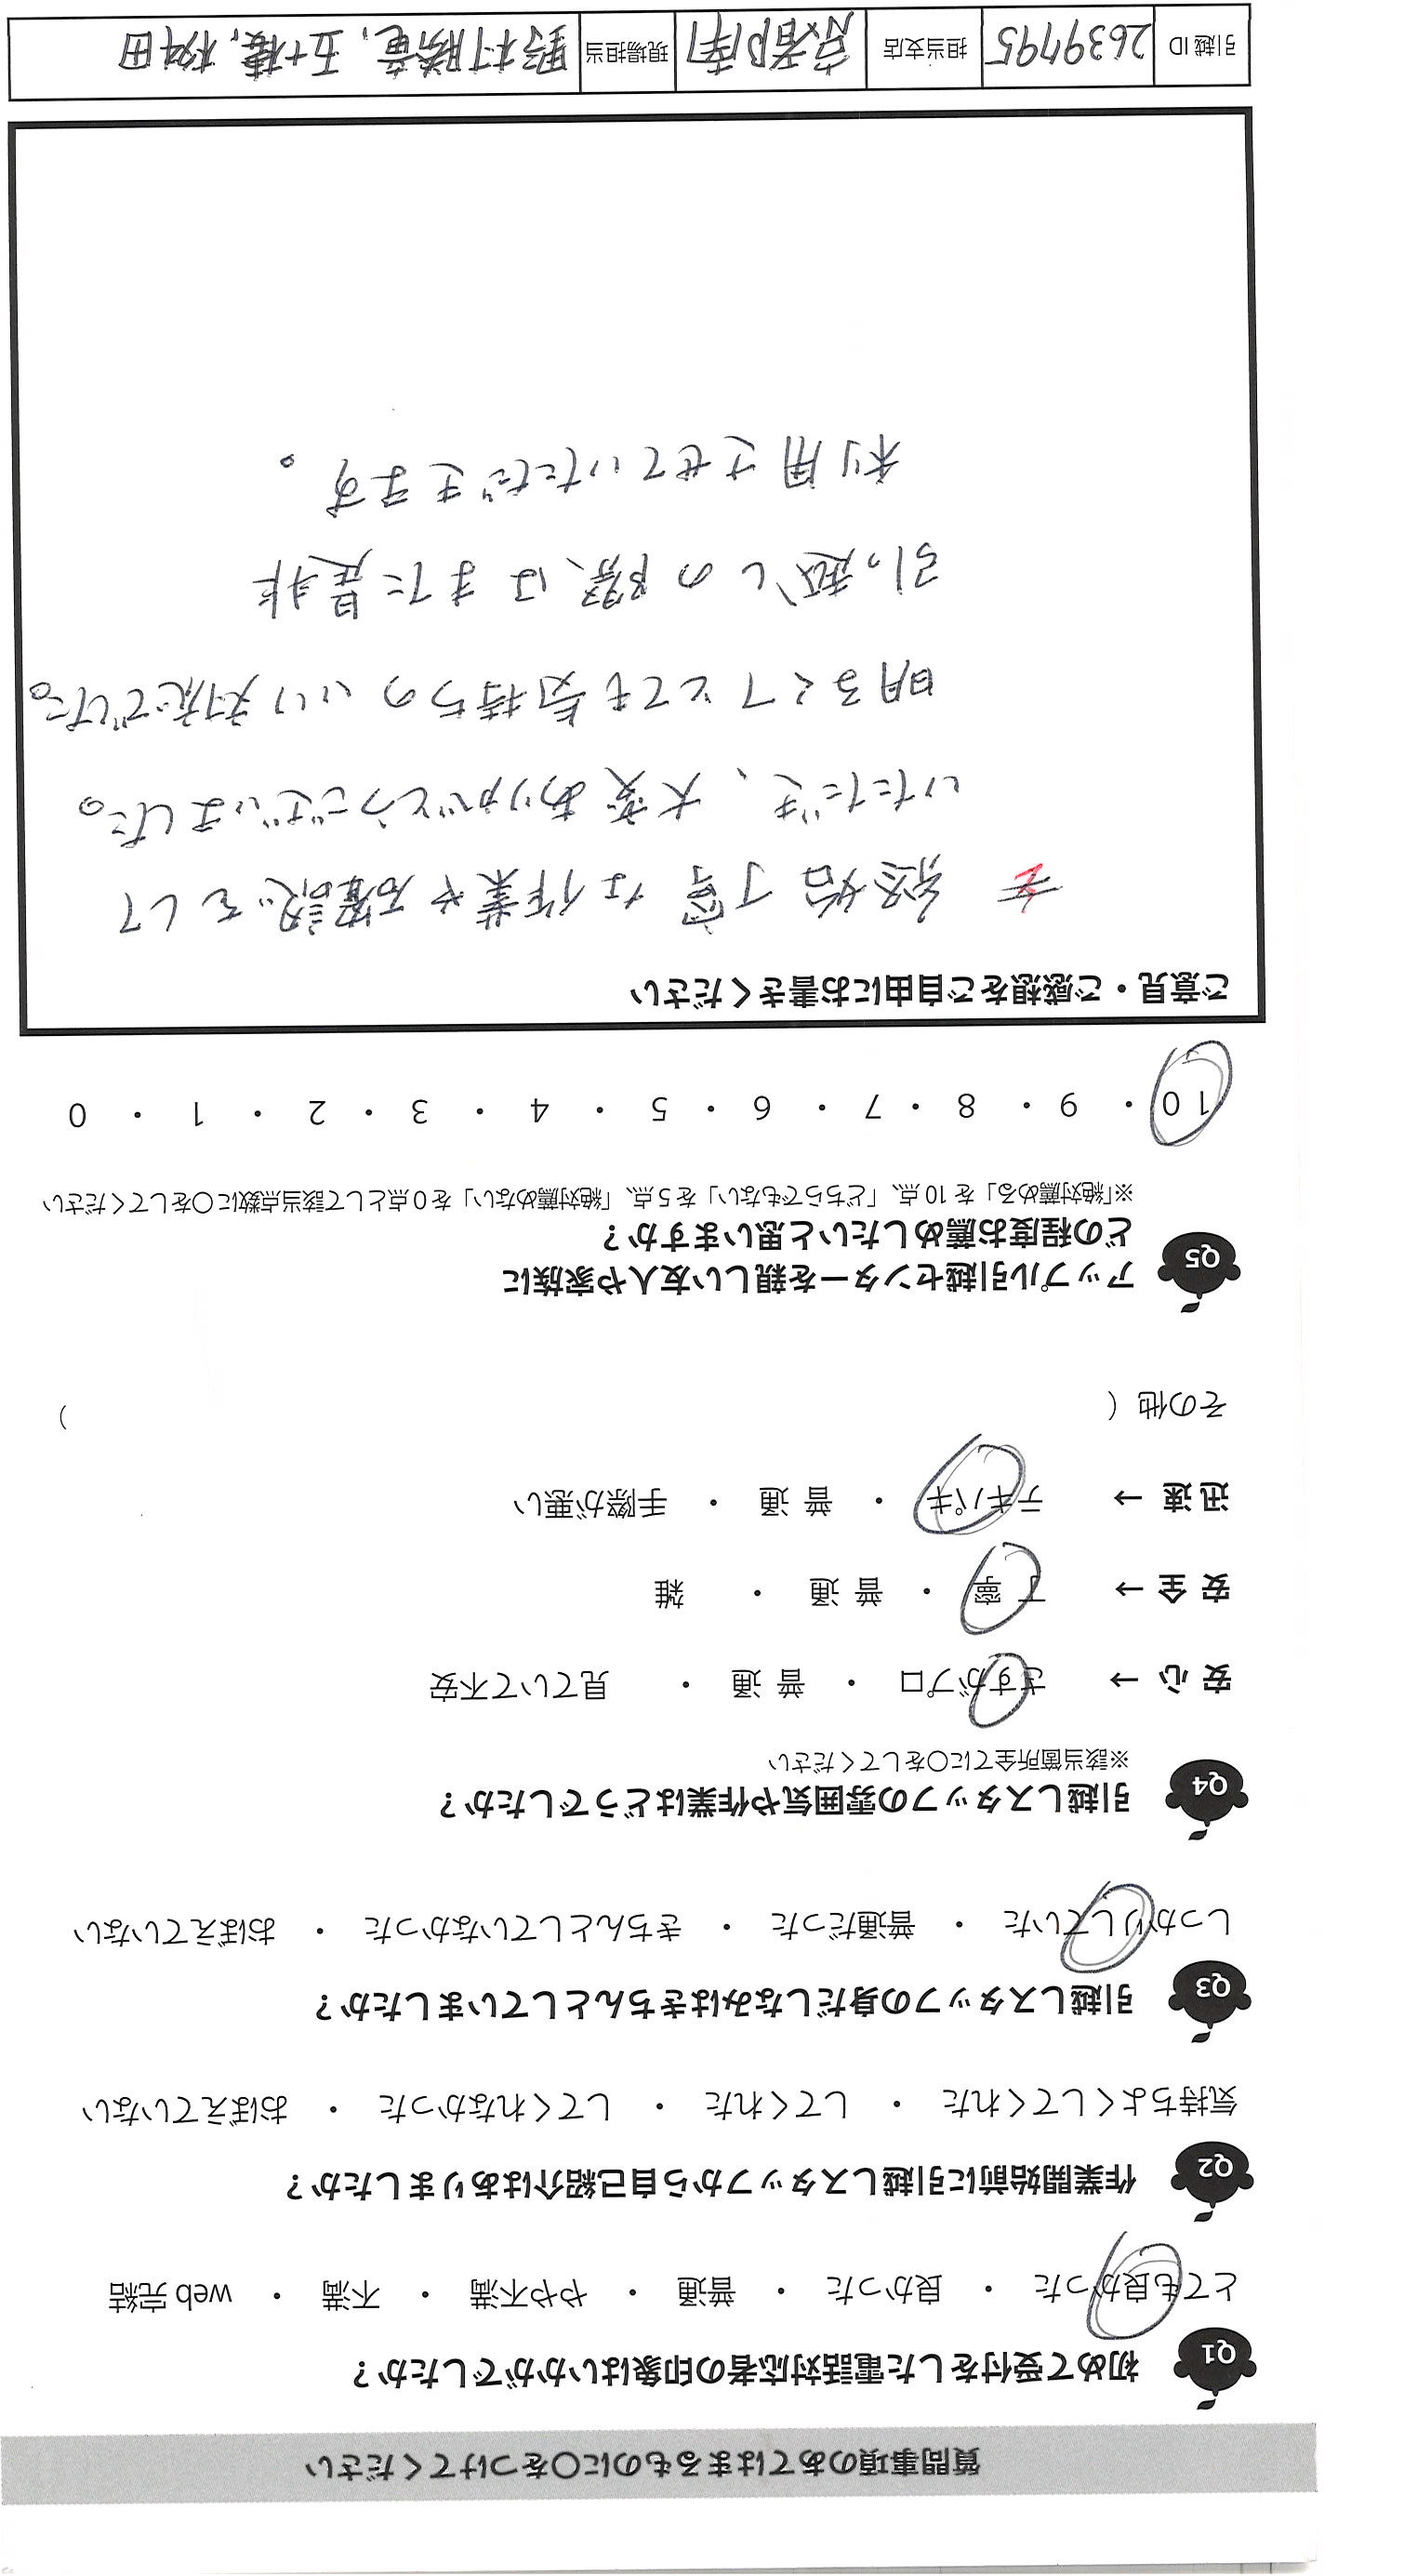 質問事項のあてはまるものに〇をつけてください
Q1 初めて受付をした電話対応者の印象はいかがでしたか？
とても良かった ・ 良かった ・ 普通 ・ やや不満 ・ 不満 ・ web 完結
Q2 作業開始前に引越しスタッフから自己紹介はありましたか？
気持ちよくしてくれた ・ してくれた ・ してくれなかった ・ おぼえていない
Q3 引越しスタッフの身だしなみはきちんとしていましたか？
しっかりしていた ・ 普通だった ・ きちんとしていなかった ・ おぼえていない
Q4 引越しスタッフの雰囲気や作業はどうでしたか？
※該当箇所全てに〇をしてください
安 心 → さすがプロ ・ 普 通 ・ 見ていて不安
安 全 → 丁 寧 ・ 普 通 ・ 雑
迅 速 → テキパキ ・ 普 通 ・ 手際が悪い
その他（ ）
Q5 アップル引越センターを親しい友人や家族に
どの程度お薦めしたいと思いますか？
※「絶対薦める」を 10 点、「どちらでもない」を 5 点、「絶対薦めない」を 0 点として該当点数に〇をしてください
10 ・ 9 ・ 8 ・ 7 ・ 6 ・ 5 ・ 4 ・ 3 ・ 2 ・ 1 ・ 0
ご意見・ご感想をご自由にお書きください
終始丁寧な作業や確認をして
いただき、大変ありがとうございました。
明るくてとても気持ちのいい対応でした。
引っ越しの際はまた是非
利用させていただきます。
引越 ID 2639795 担当支店 京都南 現場担当 野村勝竜, 五十棲, 桝田